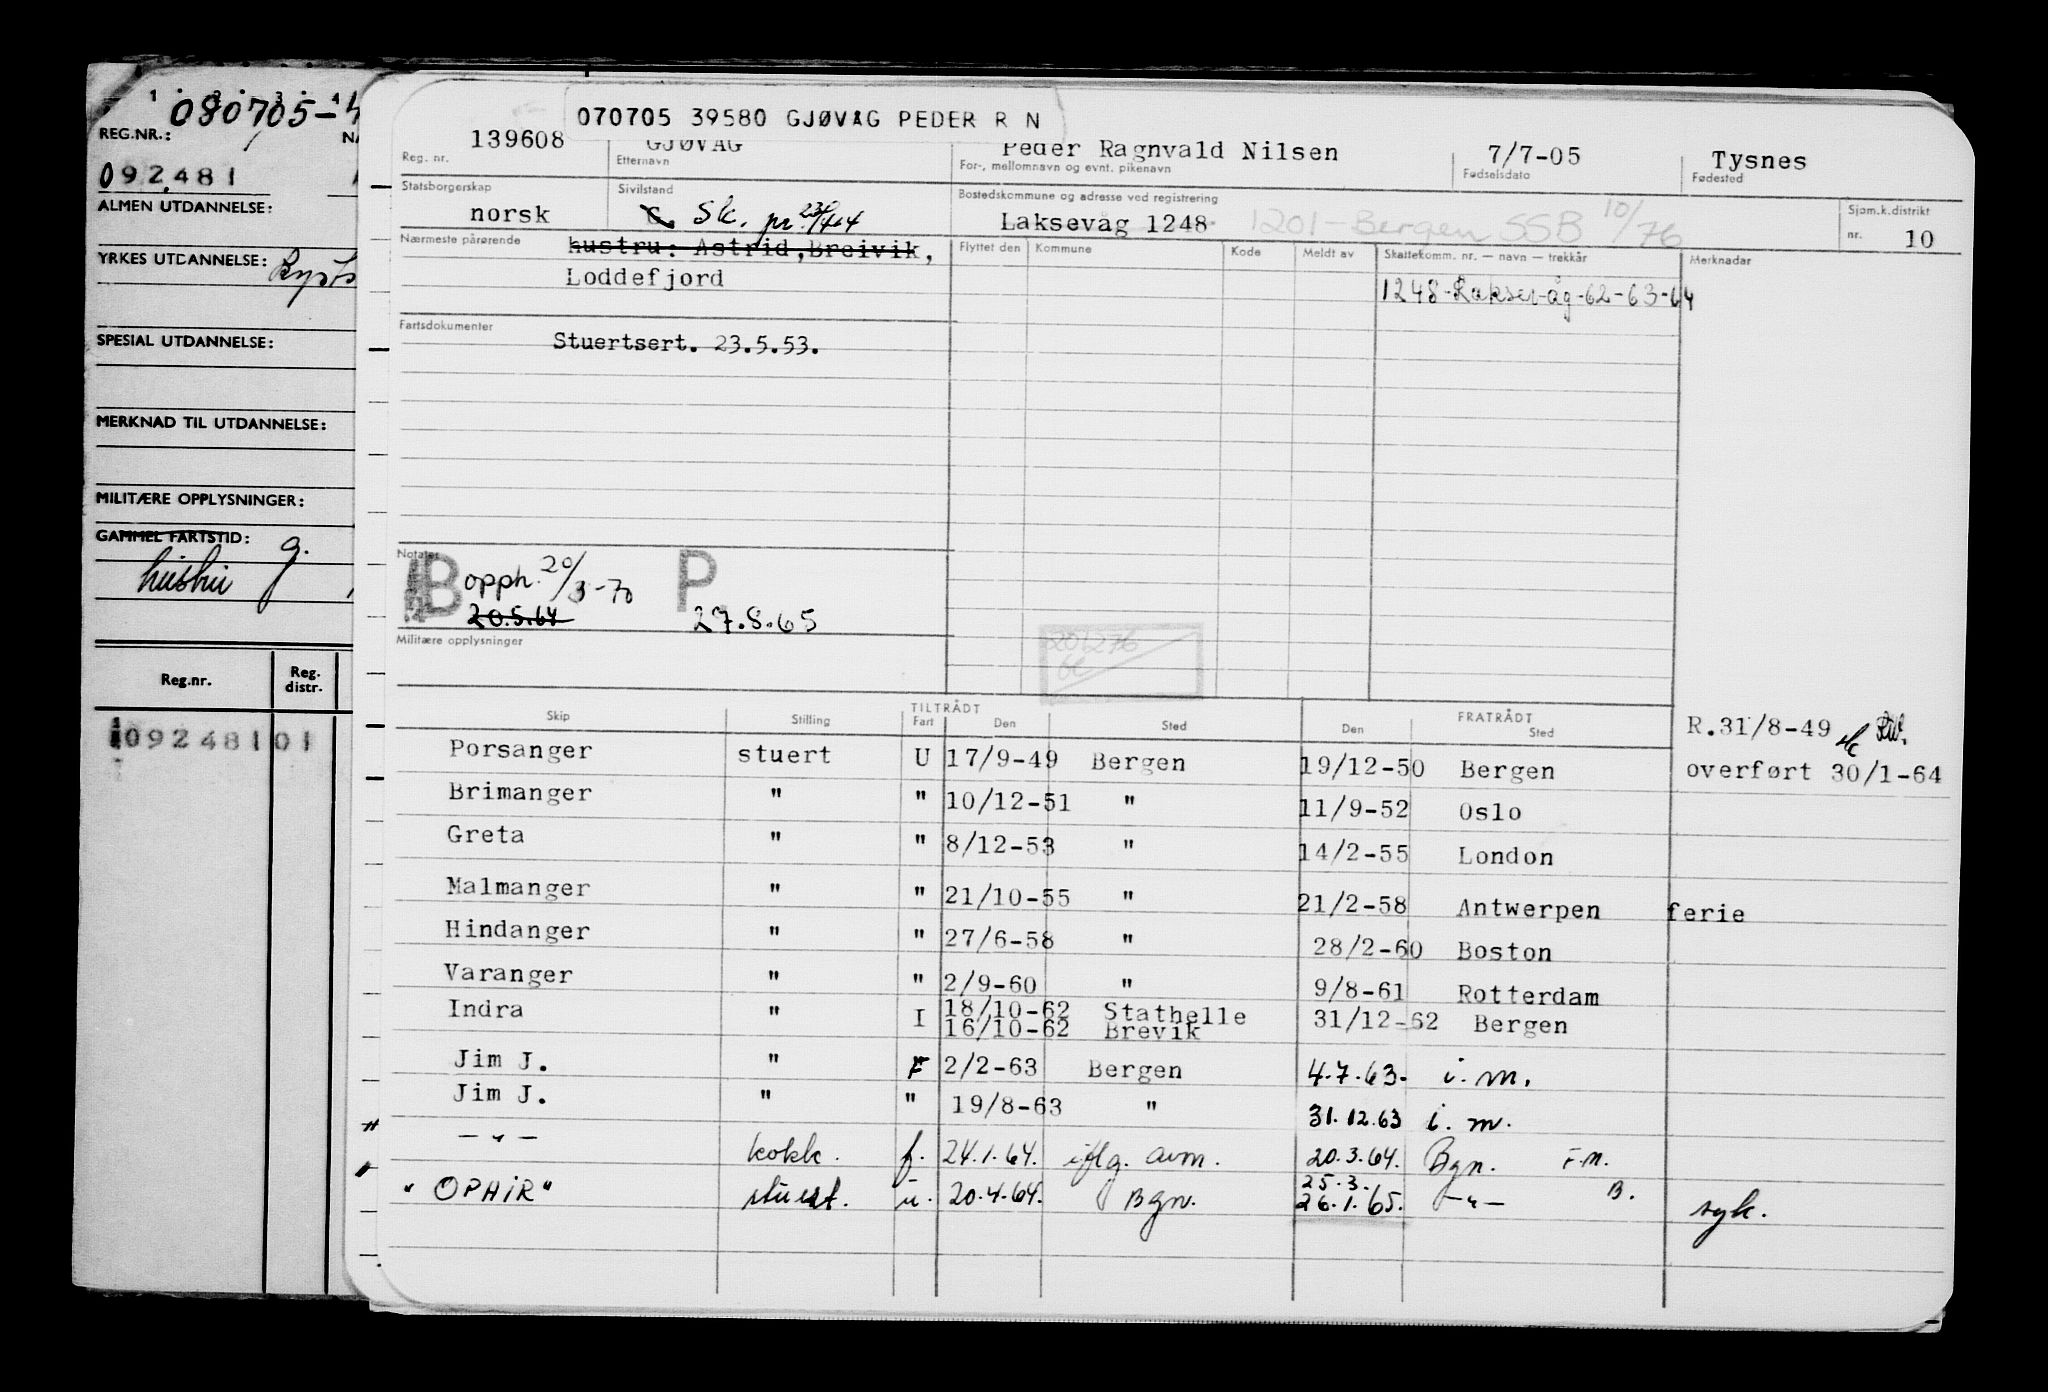 080705-
REG.NR.:
092481
ALMEN UTDANNELSE:
YRKES UTDANNELSE:
SPESIAL UTDANNELSE:
MERKNAD TIL UTDANNELSE:
MILITÆRE OPPLYSNINGER:
GAMMEL FARTSTID: g.
Reg.nr. Reg. distr.
109248101
070705 39580 GJØVÅG PEDER R N
139608 GJØVÅG Peder Ragnvald Nilsen 7/7-05 Tysnes
Reg. nr. Etternavn For-, mellomnavn og evnt. pikenavn Fødselsdato Fødested
Statsborgerskap Sivilstand Bostedskommune og adresse ved registrering Sjøm.k.distrikt
norsk G. Sk. pr. 23/4-64 Laksevåg 1248 1201-Bergen SSB 10/76 nr. 10
Nærmeste pårørende hustru: Astrid,Breivik, Flyttet den Kommune Kode Meldt av Skattekomm. nr. — navn — trekkår Merknadar
Loddefjord 1248-Laksevåg-62-63-64
Fartsdokumenter
Stuertsert. 23.5.53.
Notater
B opph. 20/3-70 P
20.5.64 27.8.65
Militære opplysninger
201276
TILTRÅDT FRATRÅDT
Skip Stilling Fart Den Sted Den Sted
R.31/8-49
Porsanger stuert U 17/9-49 Bergen 19/12-50 Bergen overført 30/1-64
Brimanger " " 10/12-51 " 11/9-52 Oslo
Greta " " 8/12-53 " 14/2-55 London
Malmanger " " 21/10-55 " 21/2-58 Antwerpen ferie
Hindanger " " 27/6-58 " 28/2-60 Boston
Varanger " " 2/9-60 " 9/8-61 Rotterdam
Indra " I 18/10-62 Stathelle 31/12-62 Bergen
16/10-62 Brevik
Jim J. " F 2/2-63 Bergen 4.7.63. i. m.
Jim J. " " 19/8-63 " 31.12.63 i. m.
— " — kokk. f. 24.1.64. iflg. avm. 20.3.64. Bgn. F.M.
"OPHIR" stuert. u. 20.4.64. Bgn. 25.3. 26.1.65. — " — B. syk.